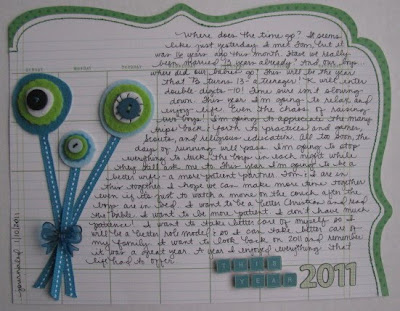 Where does the time go? It seems
like just yesterday I met Tom, but it
was 16 years ago this month. Have we really
been married 15 years already? And our boys
where did our babies go? This will be the year
that turns 13 - a teenager! will enter
double digits - 10! Time sure isn't slowing
down. This year I'm going to relax and
enjoy life. Even the chaos of raising
our boys. I'm going to appreciate the many
trips back & forth to practices and games,
Scouts, and religious education. All too soon the
days of running will pass. I'm going to stop
everything to tuck the boys in each night while
they still ask me to. This year I'm going to be a
better wife - a more patient partner. Tom & I are in
this together. I hope we can make more time together
even if it's just to watch a movie on the couch after the
boys are in bed. I want to be a better Christian and read
the bible. I want to be more patient. I don't have much
patience. I want to take better care of myself so I
will be a better role model & so I can take better care of
my family. I want to look back on 2011 and remember
it was a great year. A year I enjoyed everything that
life had to offer.
SUNDAY
MONDAY
TUESDAY
journaled 1/10/2011
THIS
YEAR
2011